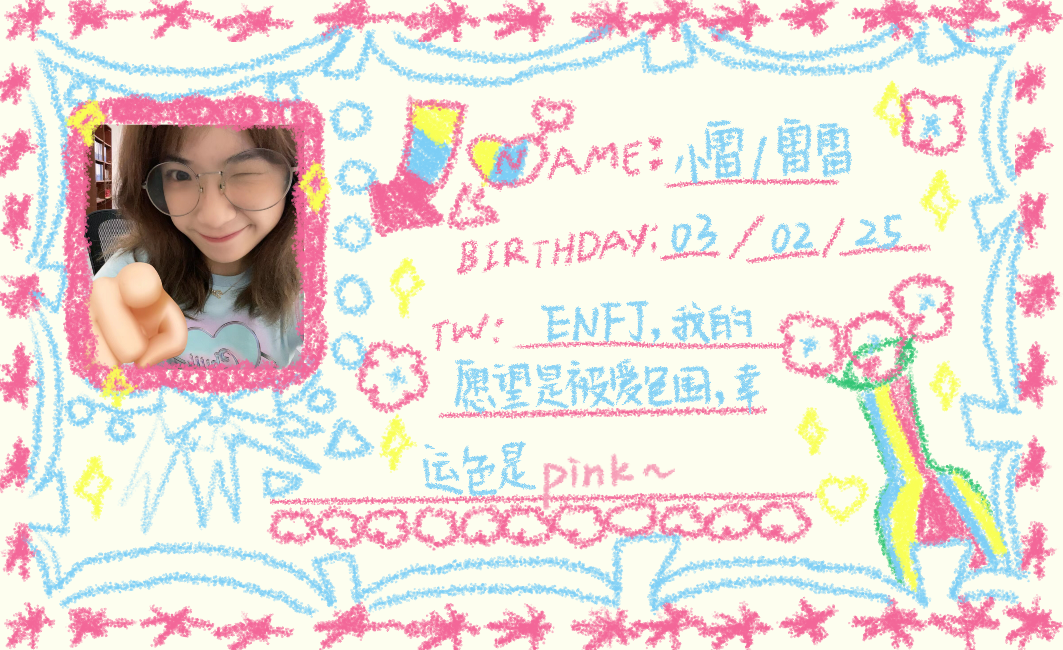 NAME: 小雷/雷雷
BIRTHDAY: 03/02/25
TW: ENFJ,我的
愿望是被爱包围,幸
运色是pink~